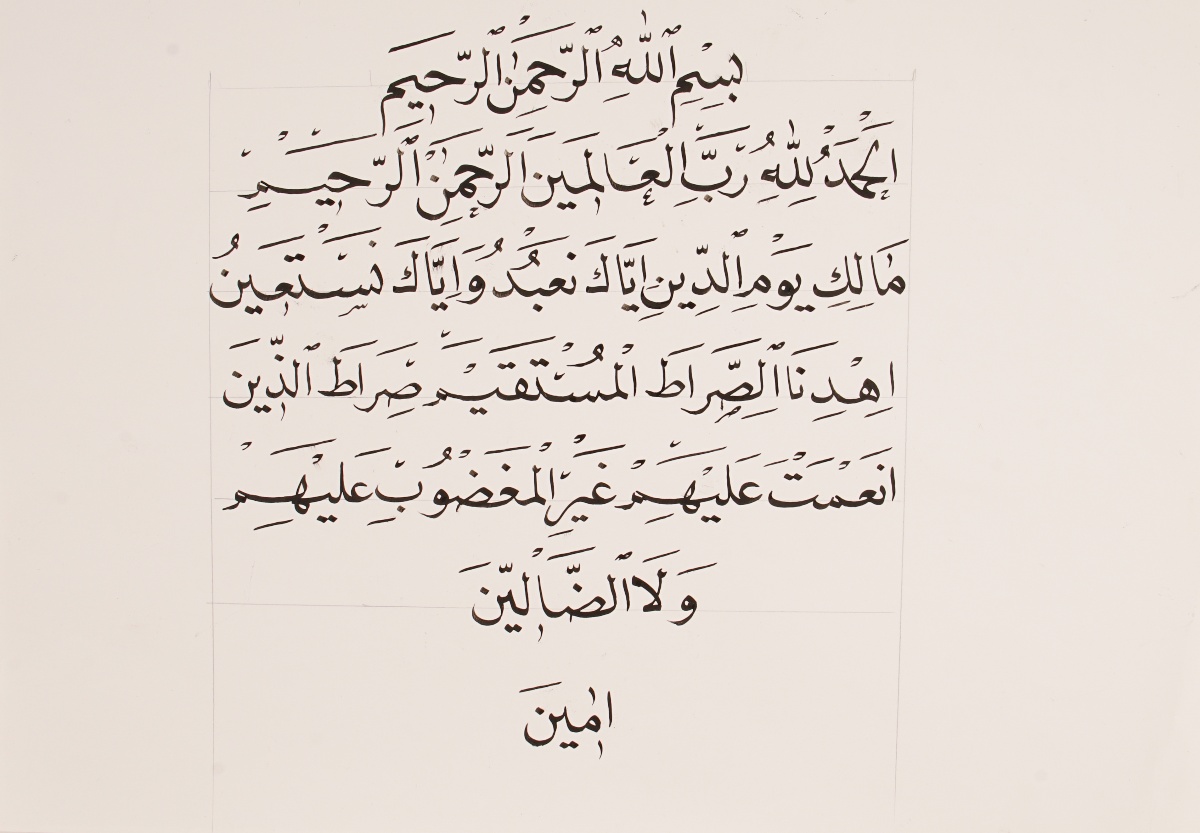 بِسْمِ ٱللّٰهِ ٱلرَّحْمٰنِ ٱلرَّحِيمِ
اَلْحَمْدُ لِلّٰهِ رَبِّ الْعَالَمِينَ الرَّحْمٰنِ ٱلرَّحِيمِ
مَالِكِ يَوْمِ الدِّينِ اِيَّاكَ نَعْبُدُ وَاِيَّاكَ نَسْتَعِينُ
اِهْدِنَا الصِّرَاطَ الْمُسْتَقِيمَ صِرَاطَ ٱلَّذِينَ
اَنْعَمْتَ عَلَيْهِمْ غَيْرِ الْمَغْضُوبِ عَلَيْهِمْ
وَلَا ٱلضَّالِّينَ
اٰمِينَ